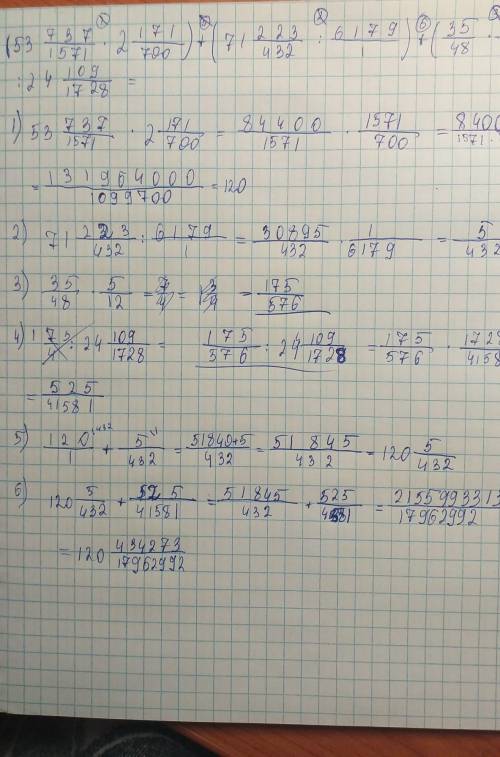 (53 737/1571 · 2 171/700) + (71 223/432 : 6179/1) + (35/48 ·
: 24 109/1728 =
1) 53 737/1571 · 2 171/700 = 84400/1571 · 1571/700 = 8400/1571·
= 131964000/1099700 = 120
2) 71 223/432 : 6179/1 = 30895/432 · 1/6179 = 5/432
3) 35/48 · 5/12 = 175/576
4) 175/576 : 24 109/1728 = 175/576 · 1728/41581
= 525/41581
5) 120/1 + 5/432 = 51840+5/432 = 51845/432 = 120 5/432
6) 120 5/432 + 525/41581 = 51845/432 + 525/41581 = 2155993313/17962992
= 120 434273/17962992